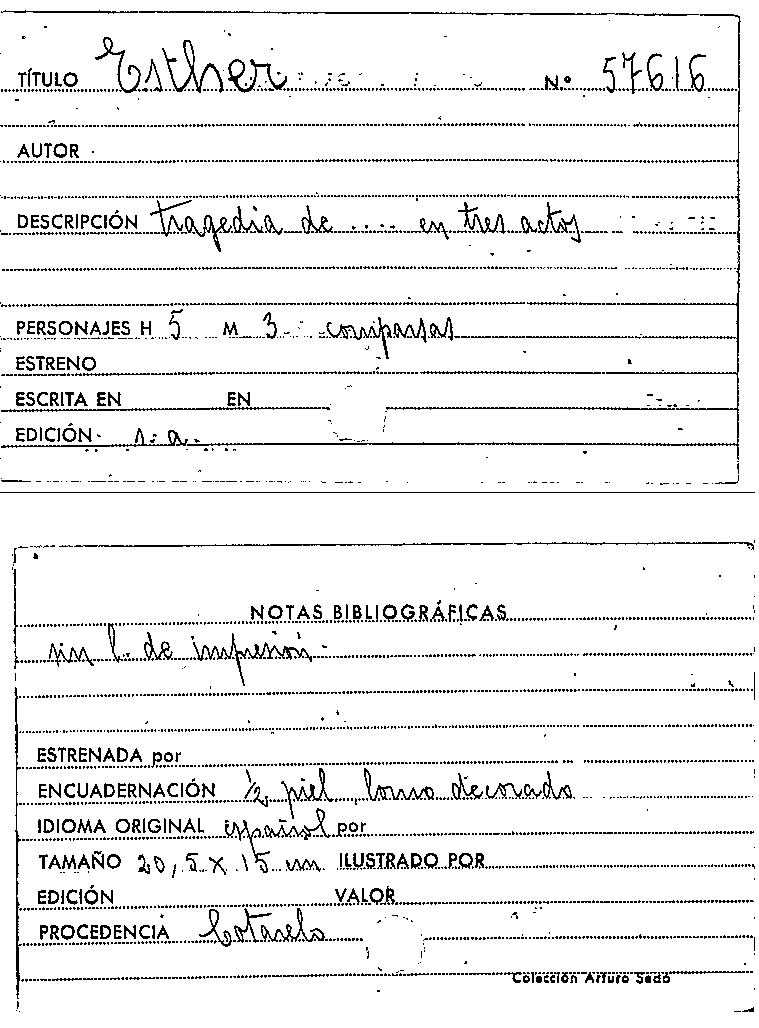 TÍTULO Esther Nº 57616
AUTOR
DESCRIPCIÓN tragedia de .... en tres actos
PERSONAJES H 5 M 3 comparsas
ESTRENO
ESCRITA EN EN
EDICIÓN s. a.
NOTAS BIBLIOGRÁFICAS
sin l. de impresión.
ESTRENADA por
ENCUADERNACIÓN ½ piel, lomo decorado
IDIOMA ORIGINAL español por
TAMAÑO 20,5 x 15 cm ILUSTRADO POR
EDICIÓN VALOR
PROCEDENCIA Cotarelo
Colección Arturo Sedó